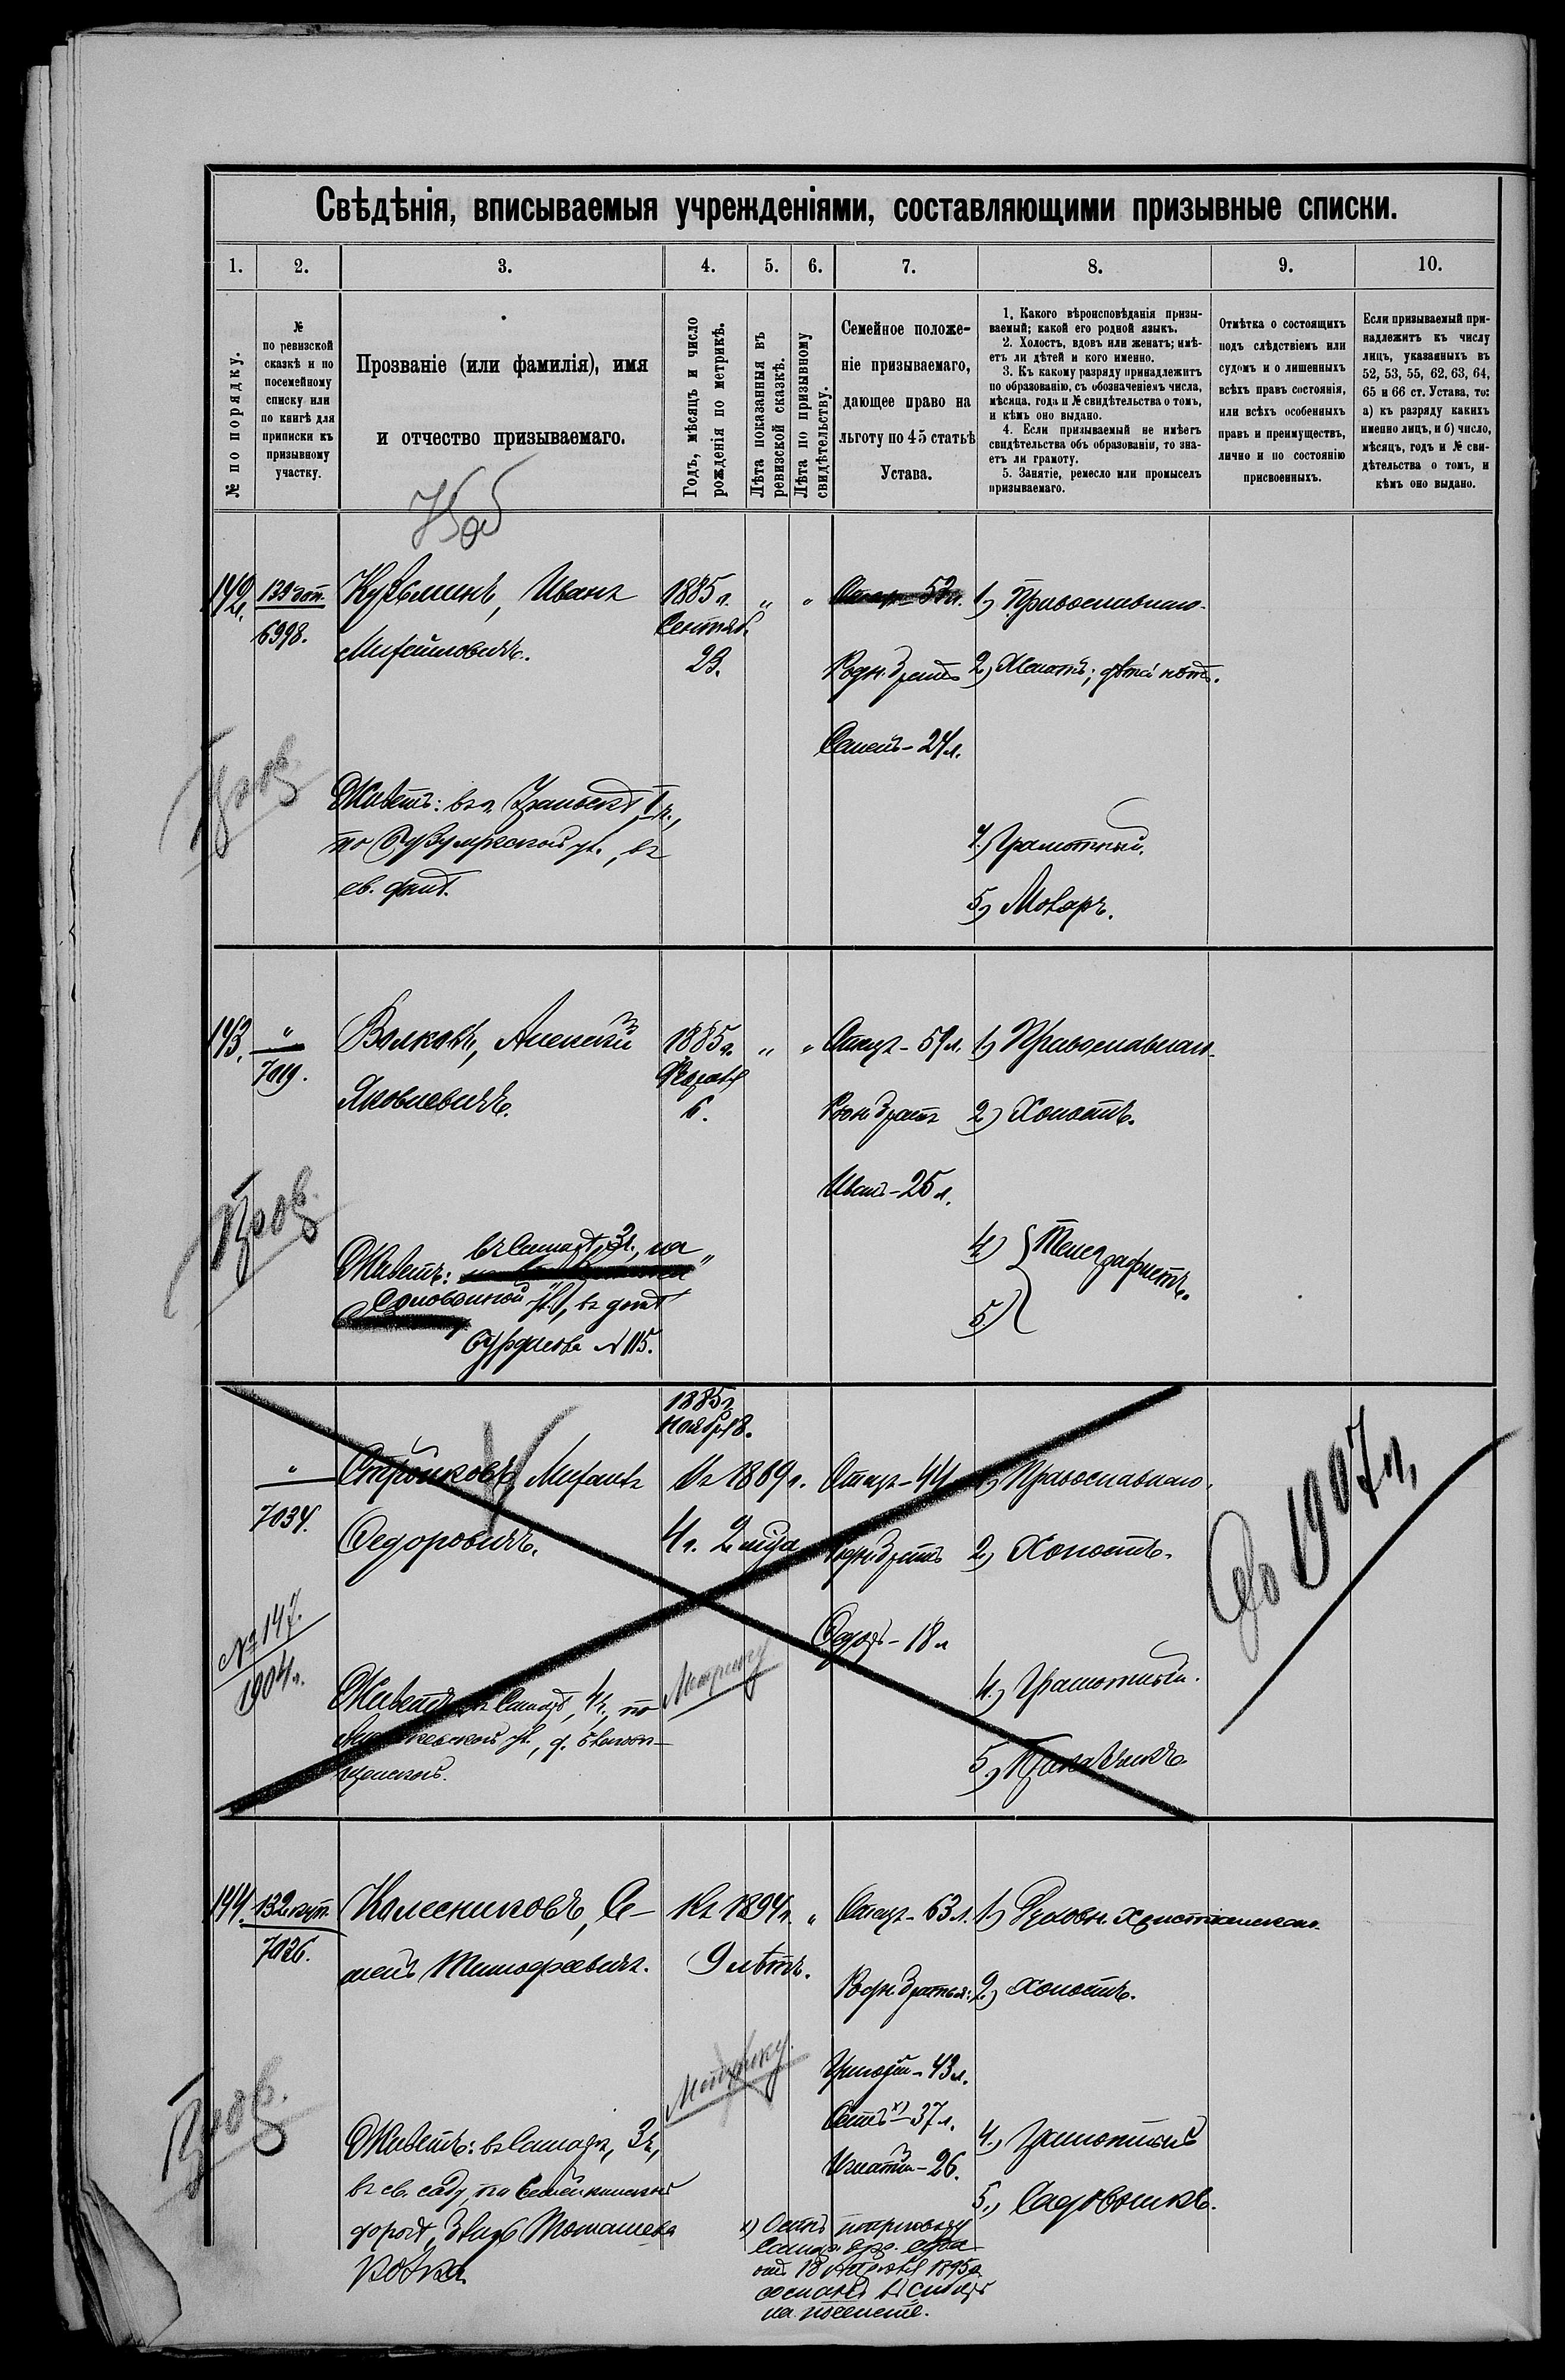 Свѣдѣнія, вписываемыя учрежденіями, составляющими призывные списки.
1. 2. 3. 4. 5. 6. 7. 8. 9. 10.
№ по порядку.
№
по ревизской
сказкѣ и по
посемейному
списку или
по книгѣ для
приписки къ
призывному
участку.
Прозваніе (или фамилія), имя
и отчество призываемаго.
Годъ, мѣсяцъ и число
рожденія по метрикѣ.
Лѣта показанныя въ
ревизской сказкѣ.
Лѣта по призывному
свидѣтельству.
Семейное положе-
ніе призываемаго,
дающее право на
льготу по 45 статьѣ
Устава.
1. Какого вѣроисповѣданія призы-
ваемый; какой его родной языкъ.
2. Холостъ, вдовъ или женатъ; имѣ-
етъ ли дѣтей и кого именно.
3. Къ какому разряду принадлежитъ
по образованію, съ обозначеніемъ числа,
мѣсяца, года и № свидѣтельства о томъ,
и кѣмъ оно выдано.
4. Если призываемый не имѣетъ
свидѣтельства объ образованіи, то зна-
етъ ли грамоту.
5. Занятіе, ремесло или промыселъ
призываемаго.
Отмѣтка о состоящихъ
подъ слѣдствіемъ или
судомъ и о лишенныхъ
всѣхъ правъ состоянія,
или всѣхъ особенныхъ
правъ и преимуществъ,
лично и по состоянію
присвоенныхъ.
Если призываемый при-
надлежитъ къ числу
лицъ, указанныхъ въ
52, 53, 55, 62, 63, 64,
65 и 66 ст. Устава, то:
а) къ разряду какихъ
именно лицъ, и б) число,
мѣсяцъ, годъ и № сви-
дѣтельства о томъ, и
кѣмъ оно выдано.
142.
6998.
Кузьминъ, Иванъ
Михайловичъ.
1885 г.
Сентяб.
23.
" "
Родн. братъ
Семенъ - 24 л.
1) Православнаго.
2) Женатъ; дѣтей нѣтъ.
4.) Грамотный.
5.) Маляръ.
Живетъ: въ г. Уральскѣ,
по ул., въ
св. домѣ.
143.
"
7019.
Волковъ, Алексѣй
Яковлевичъ.
1885 г.
Февраля
6.
" "
Отецъ - 59 л.
Родн. братъ
Иванъ - 25 л.
1) Православнаго.
2) Холостъ.
4)
5.)
Телеграфистъ.
Живетъ: въ Самарѣ, 3 ч., на
Соловьиной ул., въ домѣ
№ 115.
"
7034.
№ 147.
1904 г.
Стройковъ, Михаилъ
Федоровичъ.
1885 г.
Ноября 8.
Въ 1889 г.
4 г. 2 мѣсяца
Метрику
Отецъ - 44
Родн. братъ
Федоръ - 18 л.
1) Православнаго.
2) Холостъ.
4.) Грамотный.
5.) Приказчикъ
До 1907 г.
Живетъ въ Самарѣ, 4 ч., по
ул., д.
144.
7026.
Колесниковъ, Се-
менъ Тимофеевичъ.
Въ 1894 г.
9 лѣтъ.
"
Метрику.
Отецъ - 63 л.
Родн. братья:
Григорій - 43 л.
Осипъ х) - 37 л.
Игнатій - 26.
1) Духовн. Христіанскаго.
2) Холостъ.
4.) Грамотный
5.) Садовникъ.
Живетъ: въ Самарѣ, 3 ч.,
въ св. саду, по Семейкинской
дорогѣ, близъ Томашева
колка.
х) Осипъ по приговору
Самар. Окр. Суда
отъ 18 Апрѣля 1895 г.
сосланъ въ Сибирь
на поселеніе.